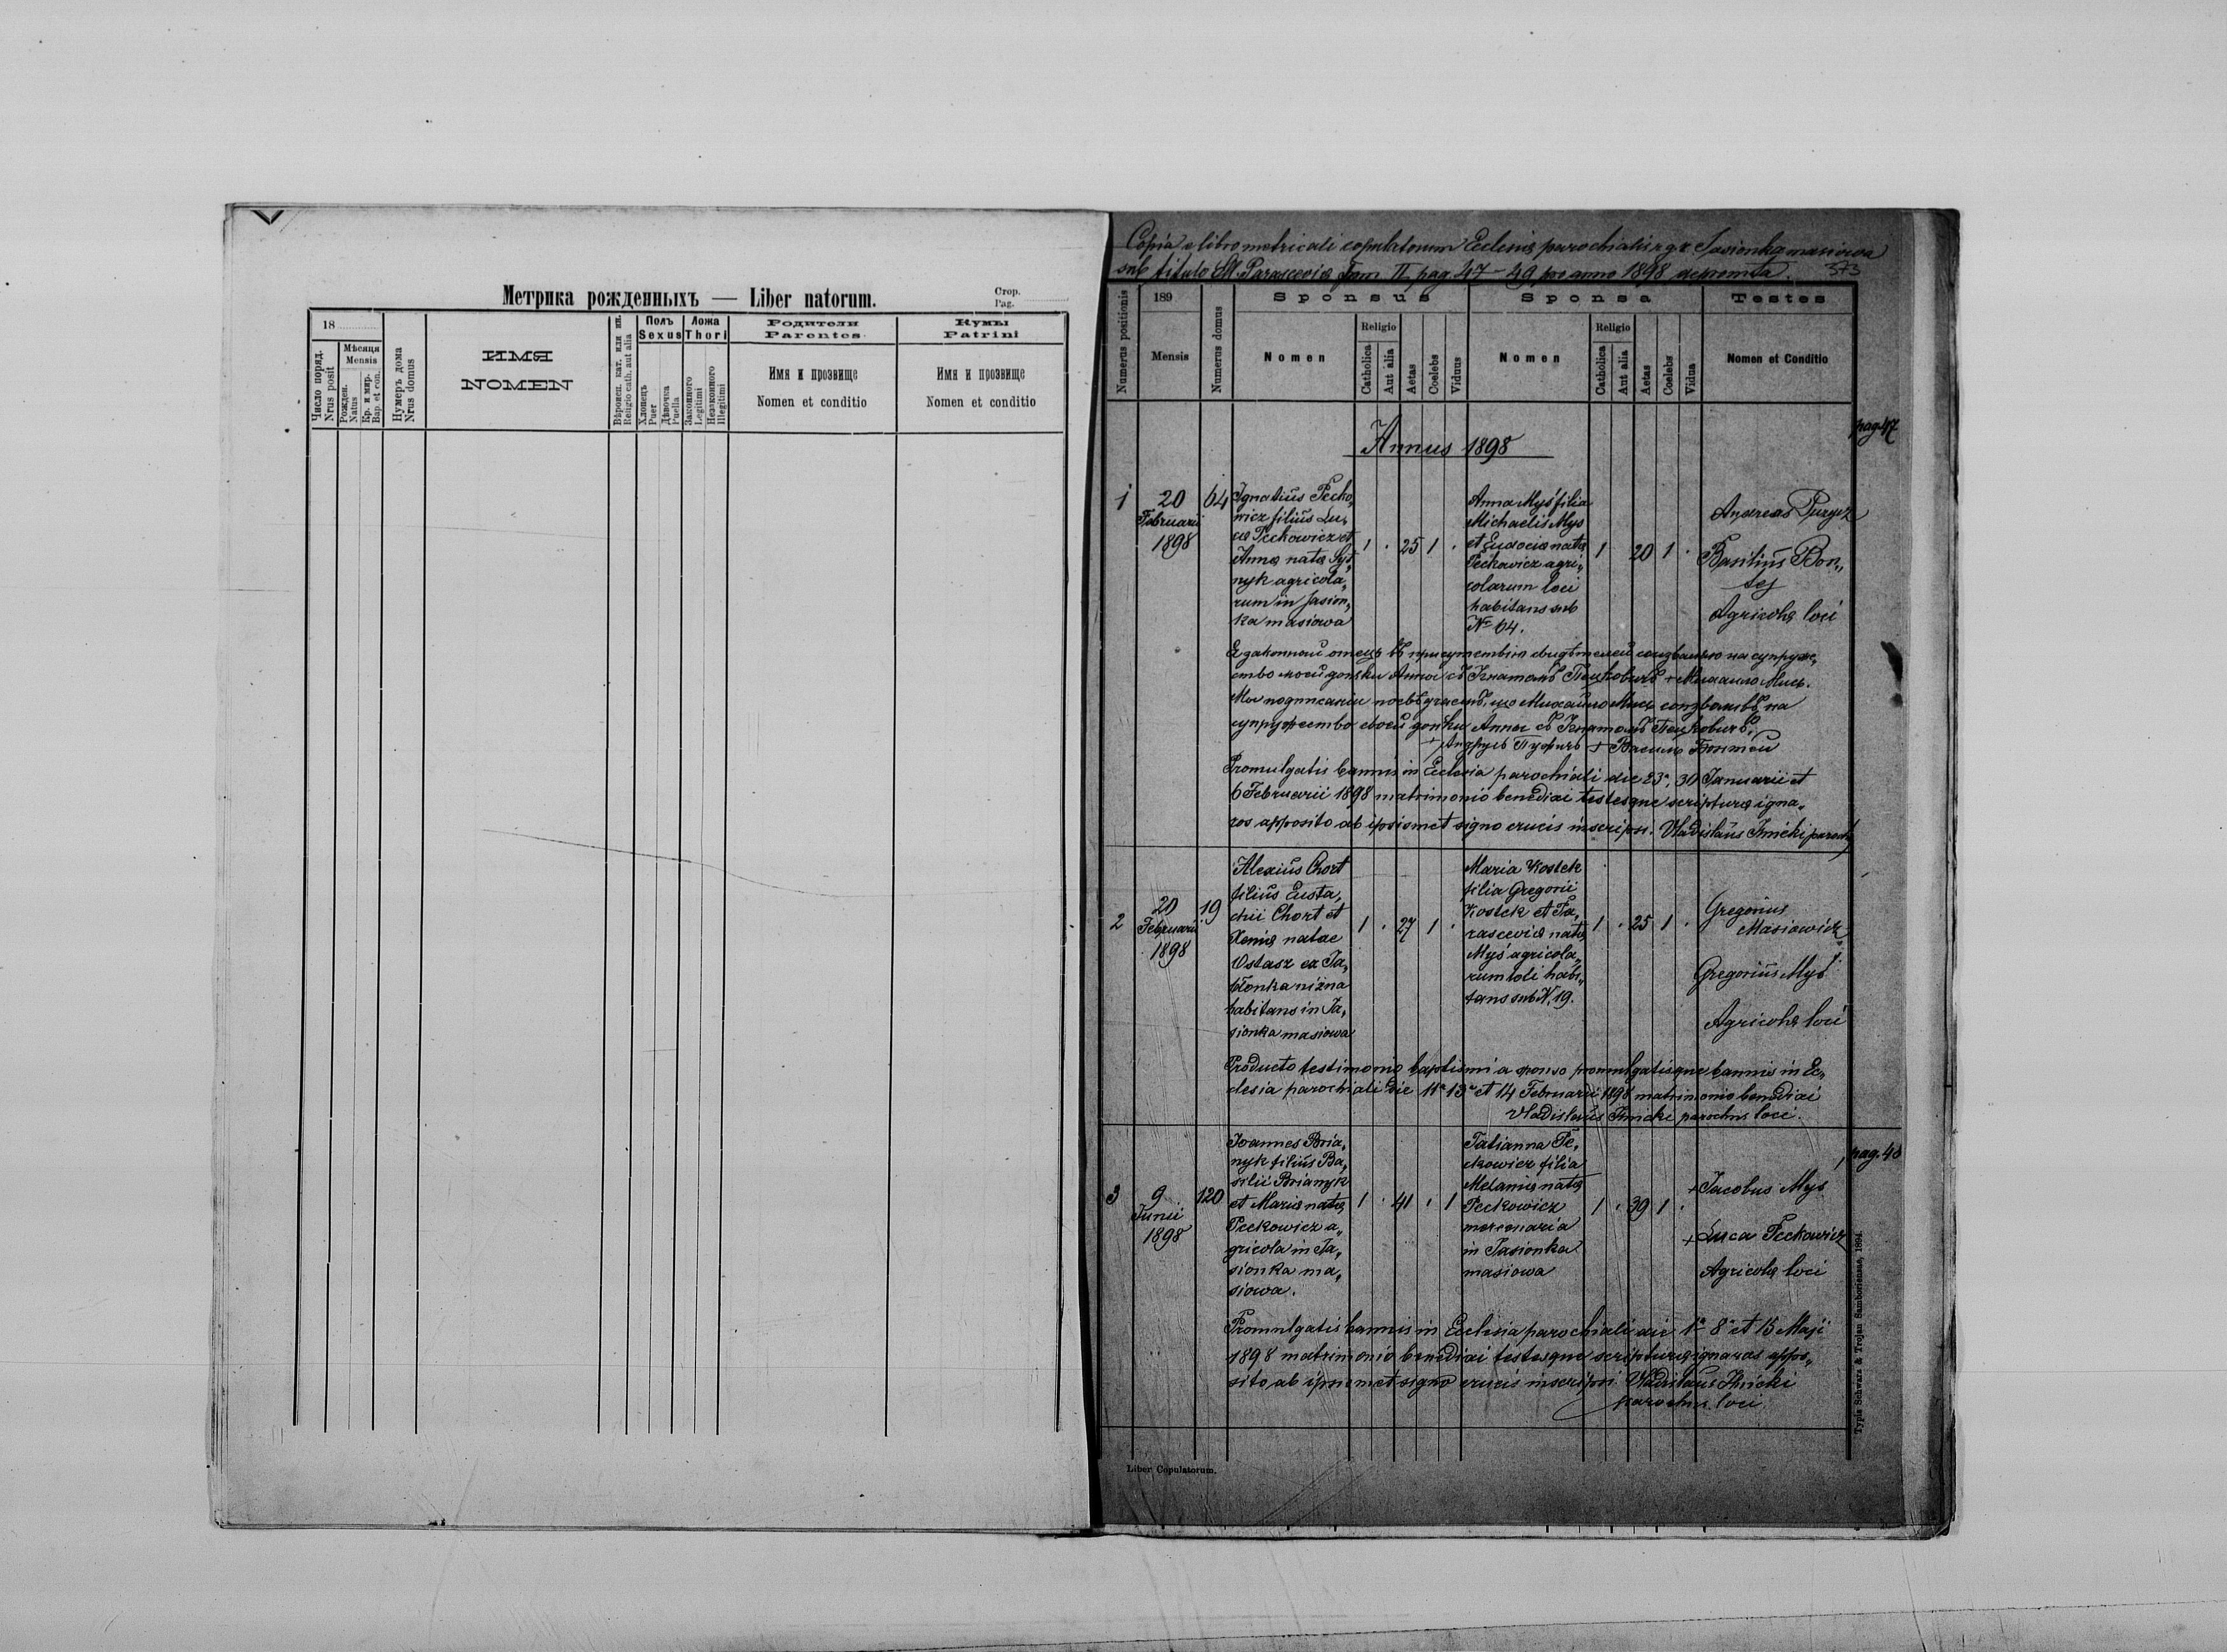 Метрика рожденныхъ — Liber natorum.
Стор.
Pag.
18
Число поряд.
Nrus posit
Мѣсяця
Mensis
Рожден.
Natus
Кр. и мир.
Bap. et con.
Нумеръ дома
Nrus domus
ИМЯ
NOMEN
Вѣроисп. кат. или ин.
Religio cath. aut alia
Полъ
Sexus
Хлопецъ
Puer
Дѣвочка
Puella
Ложа
Thori
Законного
Legitimi
Незаконного
Illegitimi
Родители
Parentes
Имя и прозвище
Nomen et conditio
Кумы
Patrini
Имя и прозвище
Nomen et conditio
Copia e libro metricali copulatorum Ecclesiæ parochialis r. g. c. Jasionka masiowa
sub titulo St. Parasceviæ Tom II, pag. 47 – 49 pro anno 1898 depromta.
373
Numerus positionis
189
Mensis
Numerus domus
Sponsus
Nomen
Religio
Catholica
Aut alia
Aetas
Coelebs
Viduus
Sponsa
Nomen
Religio
Catholica
Aut alia
Aetas
Coelebs
Vidua
Testes
Nomen et Conditio
pag. 47
Annus 1898
1
20
Februarii
1898
64
Ignatius Pecko„
wicz filius Lu„
cæ Peckowicz et
Annæ natæ
nyk agricola„
rum in Jasion„
ka masiowa
1 . 25 1 .
Anna Myś filia
Michaelis Myś
et Eudociæ natæ
Peckowicz agri„
colarum loci
habitans sub
№ 64.
1 20 1 .
Andreas
Basilius Bon„
tej
Agricolæ loci
Я законный отецъ въ присутствіи свидѣтелей соизволяю на супруж„
ство моей доньки Анны съ Игнатомъ Пецковичъ + Михайло Мись.
Мы подписаніи посвѣдчаемъ, що Михайло Мись соизволивъ на
супружество своей доньки Анны съ Игнатомъ Пецковичъ.
+ Андрусь + Василь Бонтей
Promulgatis bannis in Ecclesia parochiali die 23ª, 30 Januarii et
6 Februarii 1898 matrimonio benedixi testesque scripturæ igna„
ros apposito ab ipsismet signo crucis inscripsi. Vladislaus Ilnicki paroch
2
20
Februarii
1898
19
Alexius Chort
filius Eusta„
chii Chort et
Xeniæ natae
Ostasz ex Ja„
błonka niżna
habitans in Ja„
sionka masiowa
1 . 27 1 .
Maria Kostek
filia Gregorii
Kostek et Pa„
rasceviæ natæ
Myś agricola„
rum loci habi„
tans sub N. 19.
1 . 25 1 .
Gregorius
Masiowicz
Gregorius Myś
Agricolæ loci
Producto testimonio baptismi a sponso promulgatisque bannis in Ec„
clesia parochiali die 11ª 13ª et 14 Februarii 1898 matrimonio benedixi
Vladislaus Ilnicki parochus loci.
pag. 48
3
9
Junii
1898
120
Joannes Bria„
nyk filius Ba„
silii Brianyk
et Mariæ natæ
Peckowicz a„
gricola in Ja„
sionka ma„
siowa.
1 . 41 . 1
Tatianna Pe„
ckowicz filia
Melaniæ natæ
Peckowicz
mercenaria
in Jasionka
masiowa
1 . 39 1 .
+ Jacobus Myś
+ Luca Peckowicz
Agricolæ loci
Promulgatis bannis in Ecclesia parochiali die 1ª 8ª et 15 Maji
1898 matrimonio benedixi testesque scripturæ ignaros appo„
sito ab ipsismet signo crucis inscripsi Vladislaus Ilnicki
parochus loci
Liber Copulatorum.
Typis Schwarz & Trojan Samboriensae, 1894.